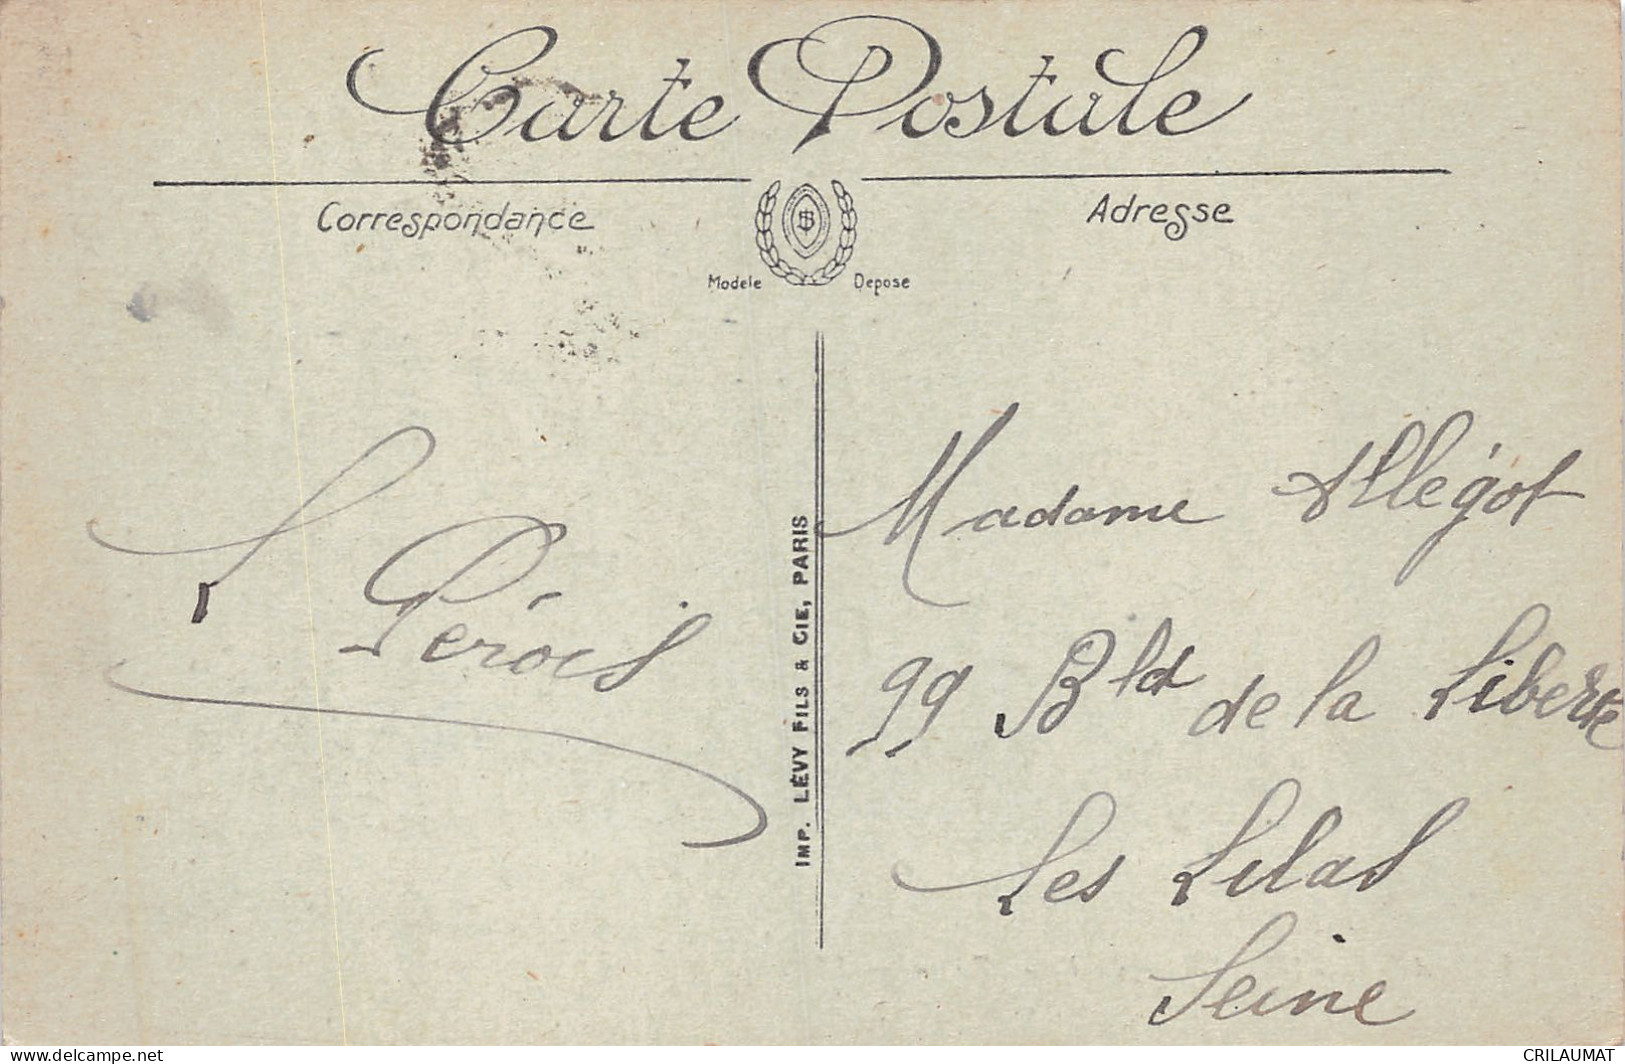 Carte Postale
Correspondance
Adresse
Modele Depose
IMP. LÉVY FILS & CIE, PARIS
Madame Allégot
99 Bld de la Liberte
Les Lilas
Seine
L Pérois
www.delcampe.net
CRILAUMAT